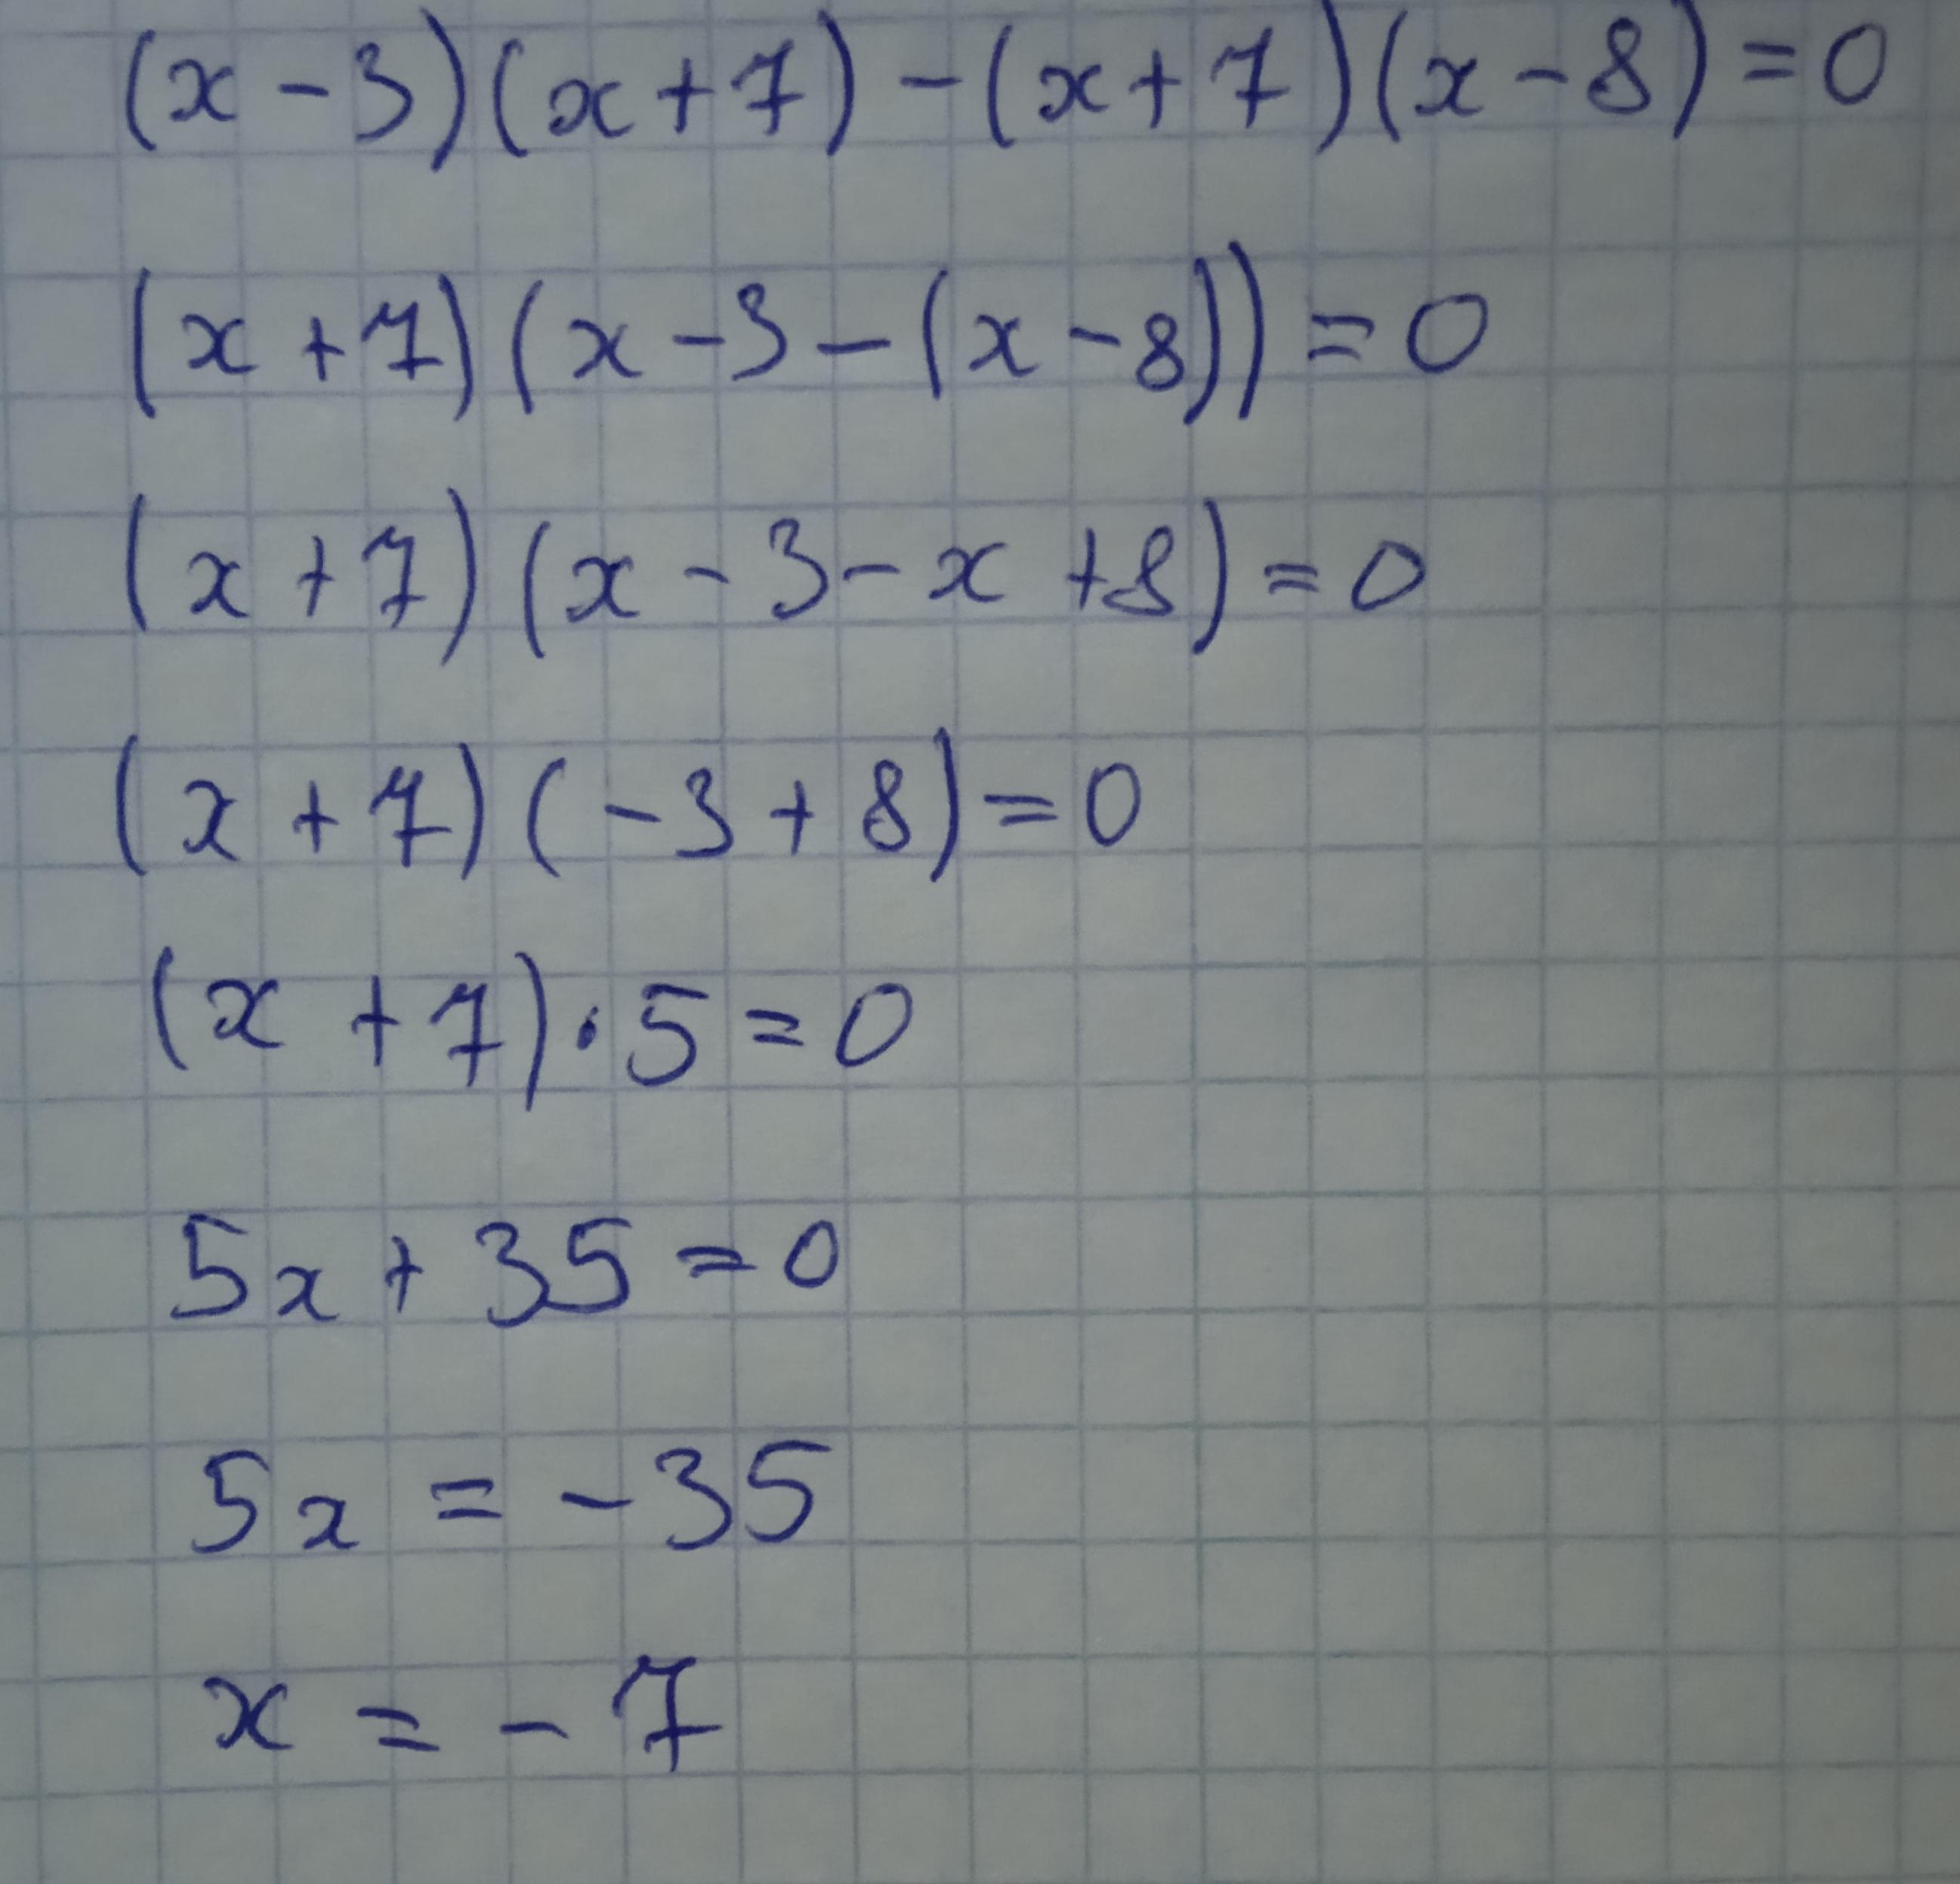 (x - 3)(x + 7) - (x + 7)(x - 8) = 0
(x + 7)(x - 3 - (x - 8)) = 0
(x + 7)(x - 3 - x + 8) = 0
(x + 7)(-3 + 8) = 0
(x + 7) · 5 = 0
5x + 35 = 0
5x = -35
x = -7